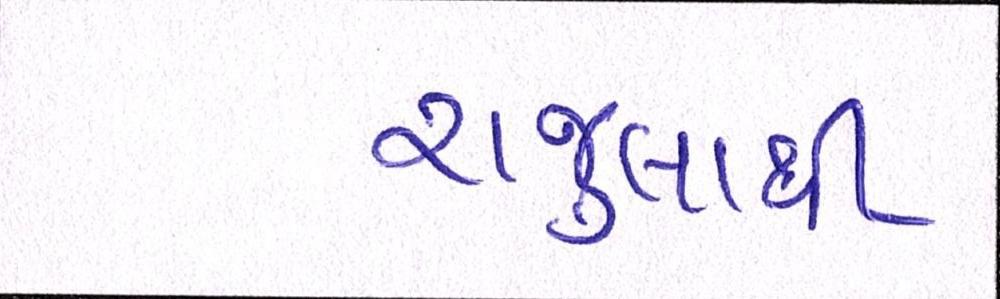 રાજુલાથી